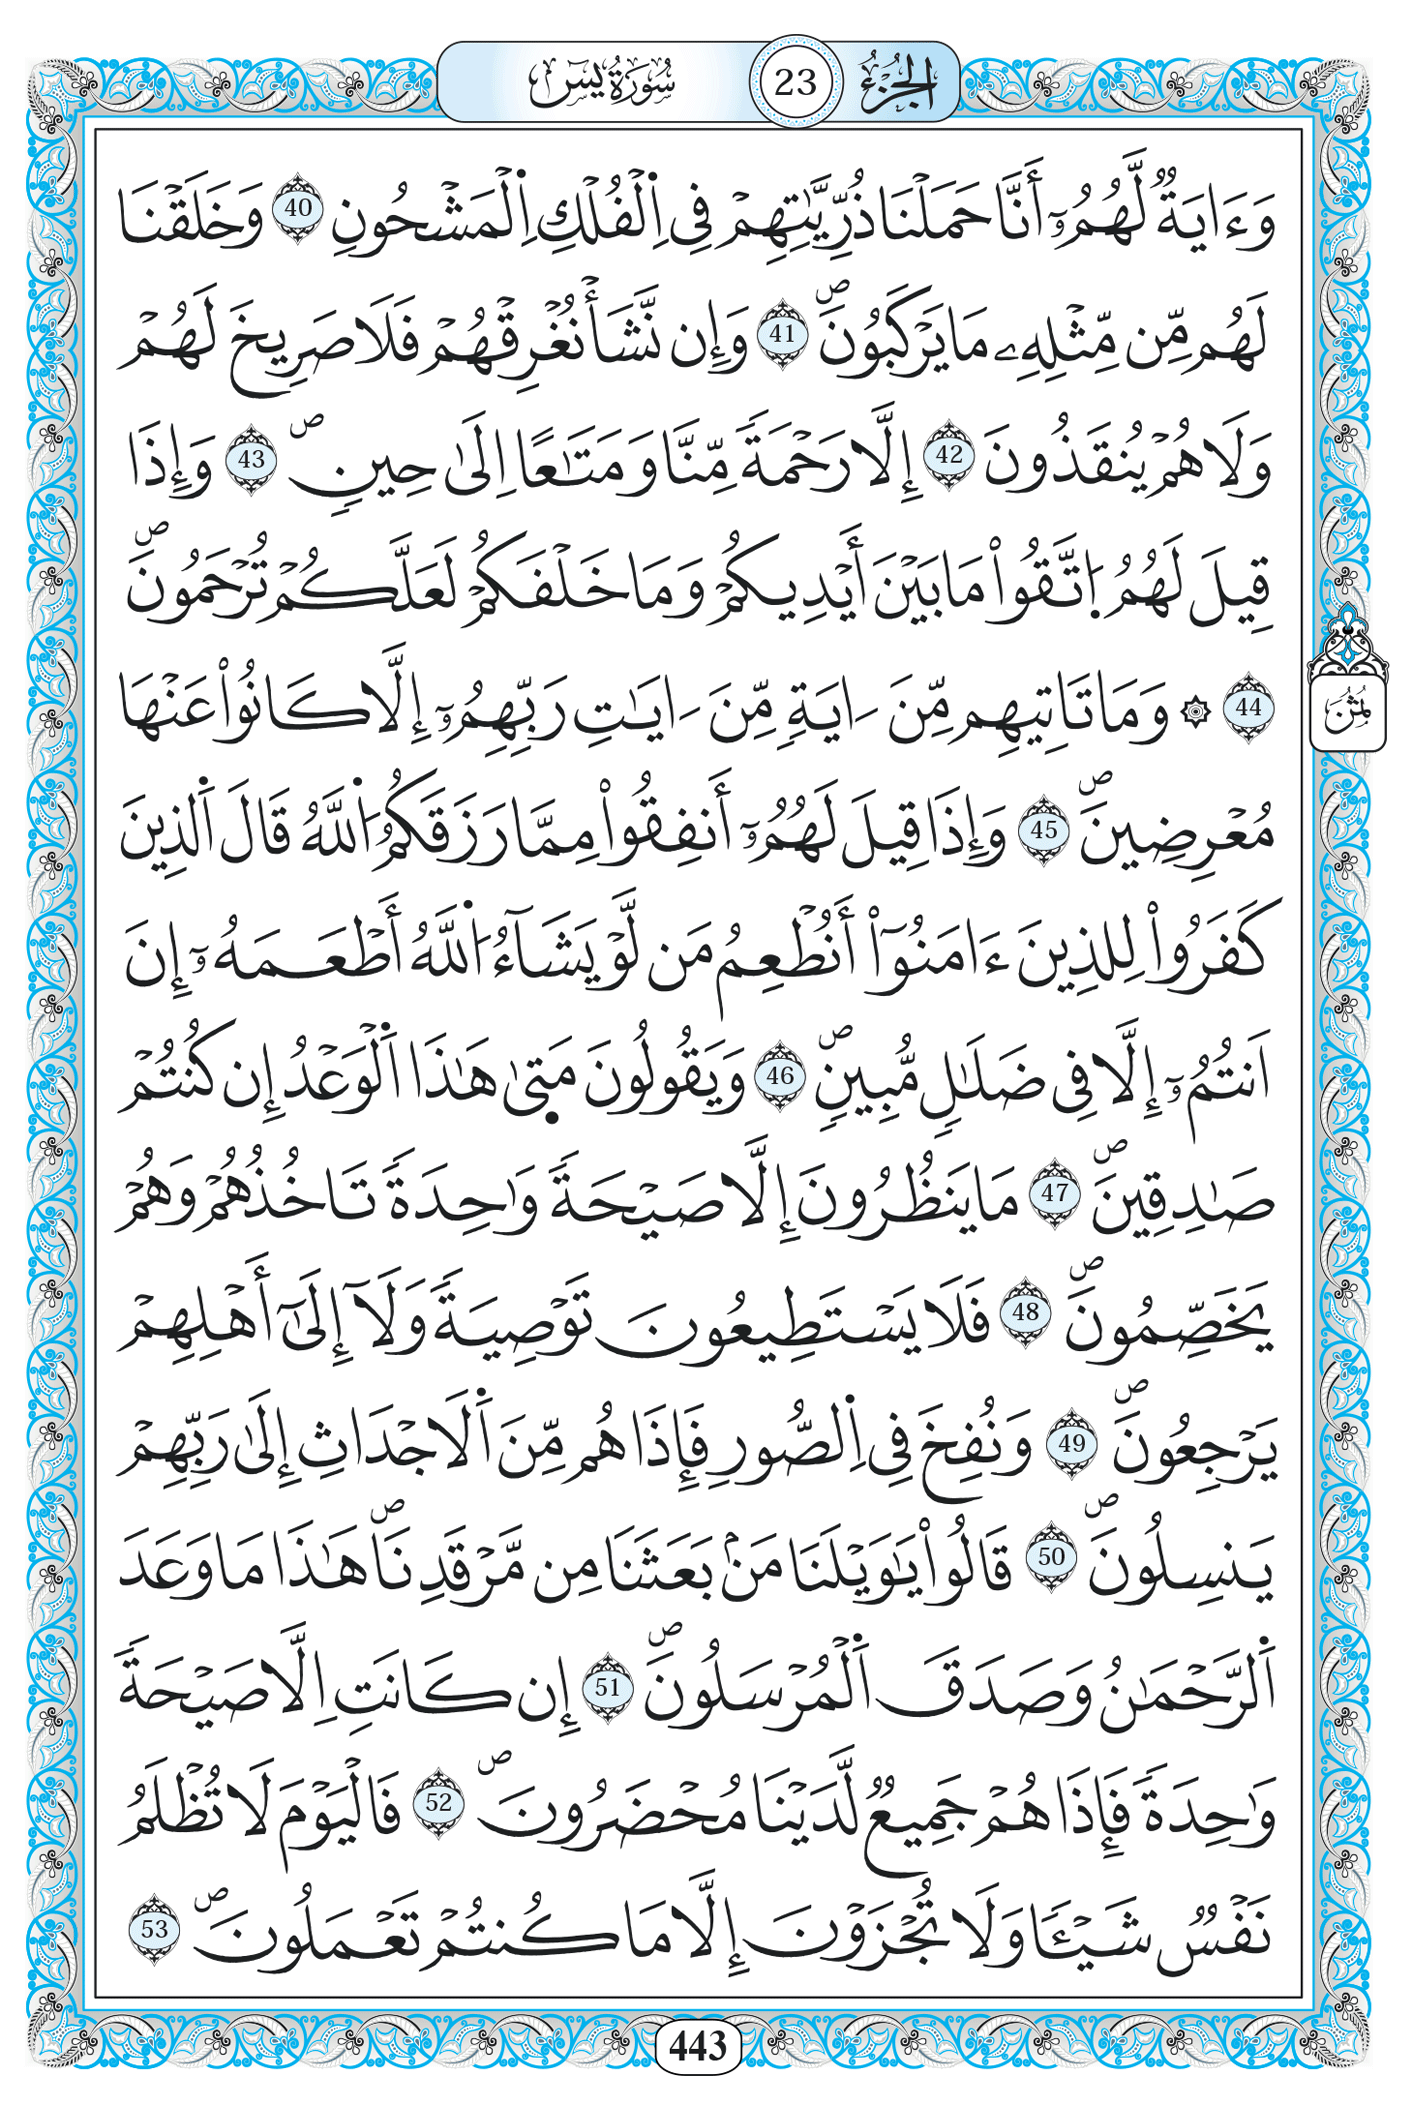 سُورَةُ يسٓ 23 الجُزْءُ
وَءَايَةٌ لَّهُمُۥٓ أَنَّا حَمَلْنَا ذُرِّيَّٰتِهِمْ فِي اِ۬لْفُلْكِ اِ۬لْمَشْحُونِ 40 وَخَلَقْنَا
لَهُم مِّن مِّثْلِهِۦ مَا يَرْكَبُونَۖ 41 وَإِن نَّشَأْ نُغْرِقْهُمْ فَلَا صَرِيخَ لَهُمْ
وَلَا هُمْ يُنقَذُونَ 42 إِلَّا رَحْمَةٗ مِّنَّا وَمَتَٰعاً اِلَىٰ حِينٖۖ 43 وَإِذَا
قِيلَ لَهُمُ اُ۪تَّقُواْ مَا بَيْنَ أَيْدِيكُمْ وَمَا خَلْفَكُمْ لَعَلَّكُمْ تُرْحَمُونَۖ
44 ۞ وَمَا تَاتِيهِم مِّنَ اٰيَةٖ مِّنَ اٰيَٰتِ رَبِّهِمُۥٓ إِلَّا كَانُواْ عَنْهَا
مُعْرِضِينَۖ 45 وَإِذَا قِيلَ لَهُمُۥٓ أَنفِقُواْ مِمَّا رَزَقَكُمُ اُ۬للَّهُ قَالَ اَ۬لذِينَ
كَفَرُواْ لِلذِينَ ءَامَنُوٓاْ أَنُطْعِمُ مَن لَّوْ يَشَآءُ اُ۬للَّهُ أَطْعَمَهُۥٓ إِنَ
اَنتُمُۥٓ إِلَّا فِي ضَلَٰلٖ مُّبِينٖۖ 46 وَيَقُولُونَ مَتَىٰ هَٰذَا اَ۬لْوَعْدُ إِن كُنتُمْ
صَٰدِقِينَۖ 47 مَا يَنظُرُونَ إِلَّا صَيْحَةٗ وَٰحِدَةٗ تَاخُذُهُمْ وَهُمْ
يَخَصِّمُونَۖ 48 فَلَا يَسْتَطِيعُونَ تَوْصِيَةٗ وَلَآ إِلَىٰٓ أَهْلِهِمْ
يَرْجِعُونَۖ 49 وَنُفِخَ فِي اِ۬لصُّورِ فَإِذَا هُم مِّنَ اَ۬لَاجْدَاثِ إِلَىٰ رَبِّهِمْ
يَنسِلُونَۖ 50 قَالُواْ يَٰوَيْلَنَا مَنۢ بَعَثَنَا مِن مَّرْقَدِنَاۖ هَٰذَا مَا وَعَدَ
اَ۬لرَّحْمَٰنُ وَصَدَقَ اَ۬لْمُرْسَلُونَۖ 51 إِن كَانَتِ اِلَّا صَيْحَةٗ
وَٰحِدَةٗ فَإِذَا هُمْ جَمِيعٞ لَّدَيْنَا مُحْضَرُونَۖ 52 فَالْيَوْمَ لَا تُظْلَمُ
نَفْسٞ شَيْـٔٗا وَلَا تُجْزَوْنَ إِلَّا مَا كُنتُمْ تَعْمَلُونَۖ 53
ثُمُنُ
443